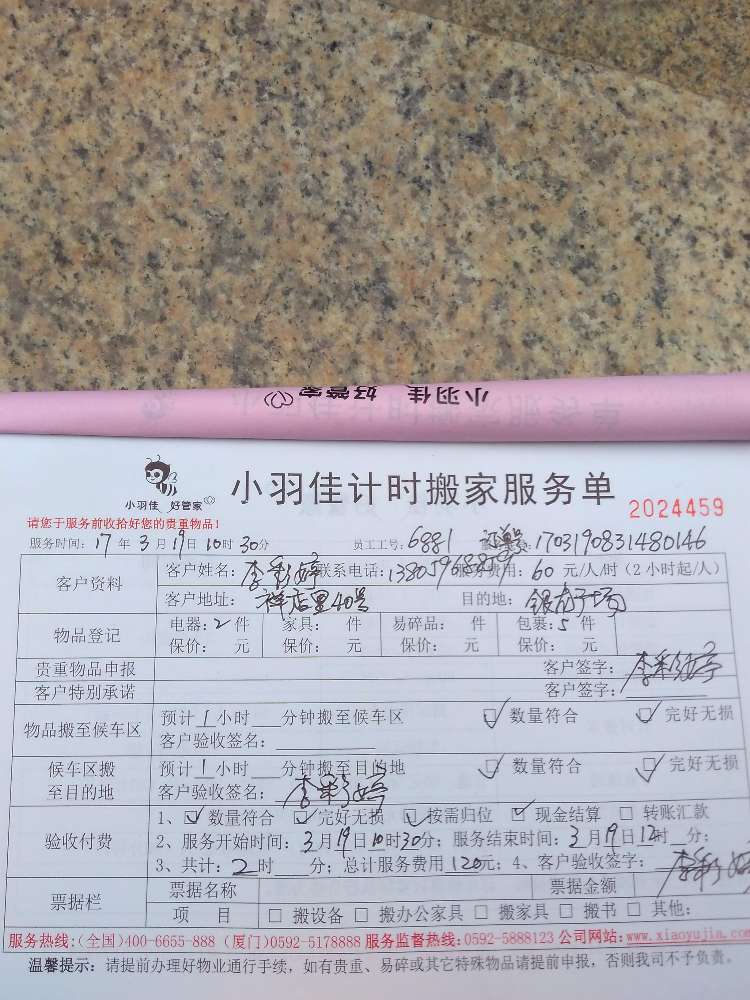 小羽佳 好管家
小羽佳 好管家
小羽佳计时搬家服务单 2024459
请您于服务前收拾好您的贵重物品！
服务时间：17年3月19日10时30分 员工工号：6881 订单号：1703190831480146
客户资料 客户姓名：李彩婷 联系电话： 服务费用：60元/人/时（2小时起/人）
客户地址：祥店里40号 目的地：
物品登记 电器：2件 家具： 件 易碎品： 件 包裹：5件
保价： 元 保价： 元 保价： 元 保价： 元
贵重物品申报 客户签字：李彩婷
客户特别承诺 客户签字：
物品搬至候车区 预计1小时 分钟搬至候车区 ☑数量符合 ☑完好无损
客户验收签名：
候车区搬至目的地 预计1小时 分钟搬至目的地 ☑数量符合 ☑完好无损
客户验收签名：李彩婷
验收付费 1、☑数量符合 ☑完好无损 ☑按需归位 ☑现金结算 □转账汇款
2、服务开始时间：3月19日10时30分；服务结束时间：3月19日12时 分；
3、共计：2时 分；总计服务费用120元；4、客户验收签字：李彩婷
票据栏 票据名称 票据金额
项 目 □搬设备 □搬办公家具 □搬家具 □搬书 □其他：
服务热线：(全国)400-6655-888 (厦门)0592-5178888 服务监督热线：0592-5888123 公司网站：www.xiaoyujia.com
温馨提示：请提前办理好物业通行手续，如有贵重、易碎或其它特殊物品请提前申报，否则我司不予负责。